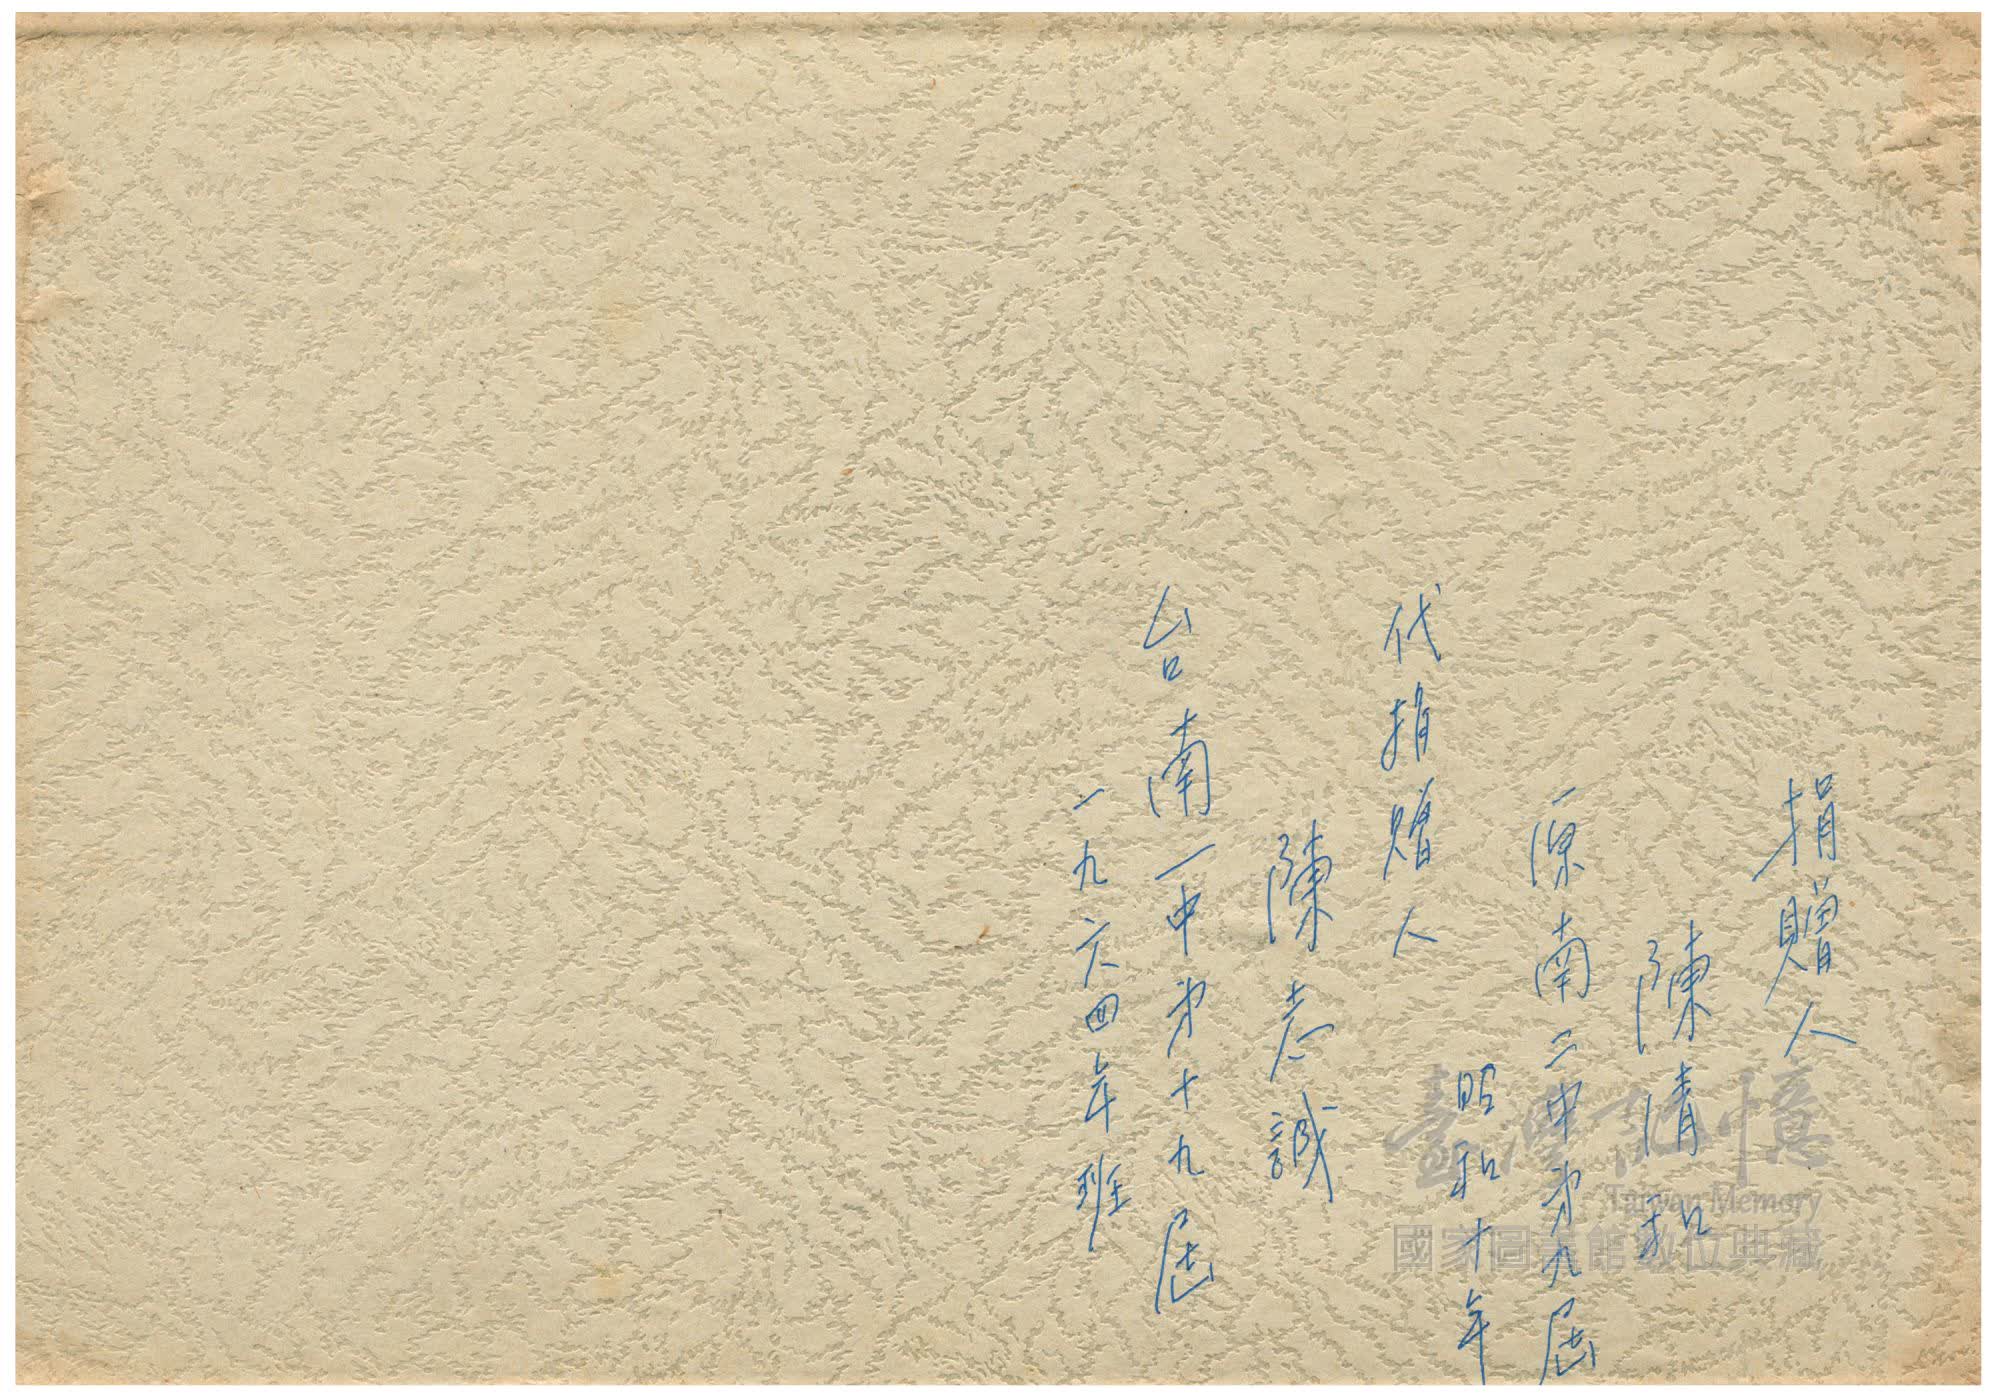 捐贈人
陳清和
一原南二中第九屆
昭和十年
代捐贈人
陳志誠
台南一中第十九屆
一九六四年班
臺灣記憶
Taiwan Memory
國家圖書館數位典藏